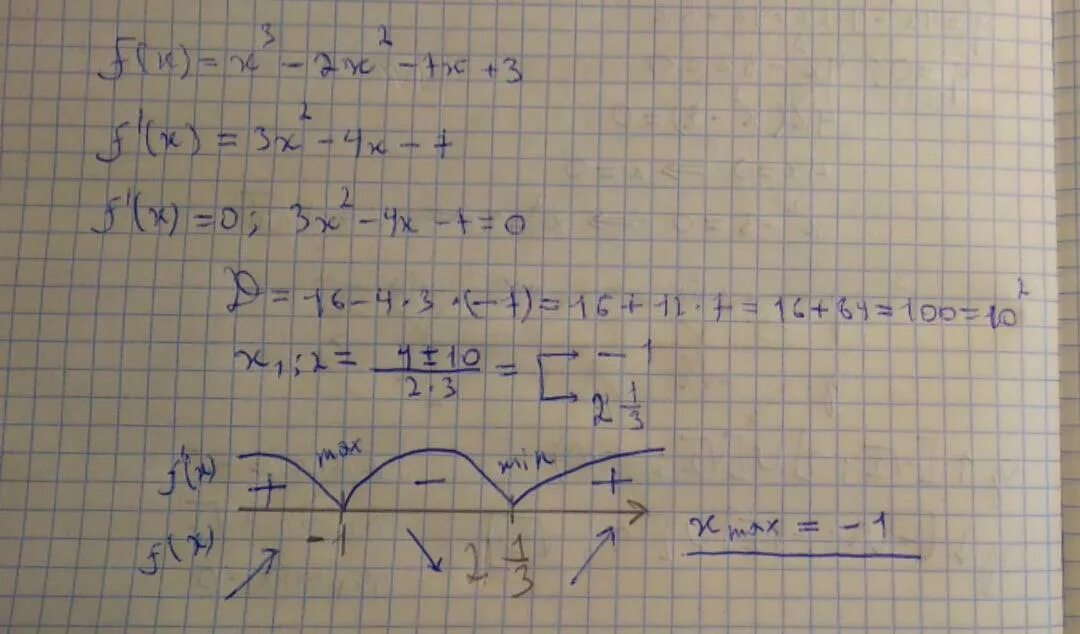 f(x) = x³ - 2x² - 7x + 3
f'(x) = 3x² - 4x - 7
f'(x) = 0; 3x² - 4x - 7 = 0
D = 16 - 4·3·(-7) = 16 + 12·7 = 16 + 84 = 100 = 10²
x₁;₂ = (4 ± 10)/(2·3) = -1
2 1/3
f'(x) + max - min +
f(x) -1 ↘ 2 1/3 ↗
x max = -1